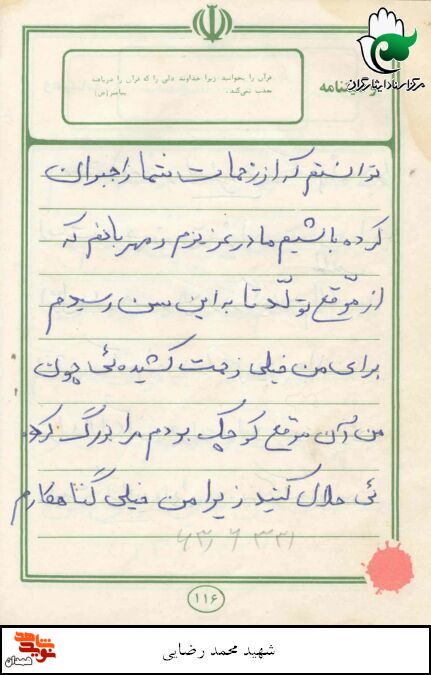 مرکز اسناد ایثارگران
قرآن را بخوانید زیرا خداوند دلی را که قرآن را دریافته
عذب نمی‌کند. پیامبر(ص)
توانستم که از زحمات شما را جبران
کرده باشیم مادر عزیزم و مهربانم که
از موّقع تولّد تا به این سن رسیدم
برای من خیلی زحمت کشیده ئی چون
من آن موقع کوچک بودم مرا بزرگ کرده
ئی حلال کنید زیرا من خیلی گناهکارم
۱۱۶
شاهد
نوید
همدان
شهید محمد رضایی